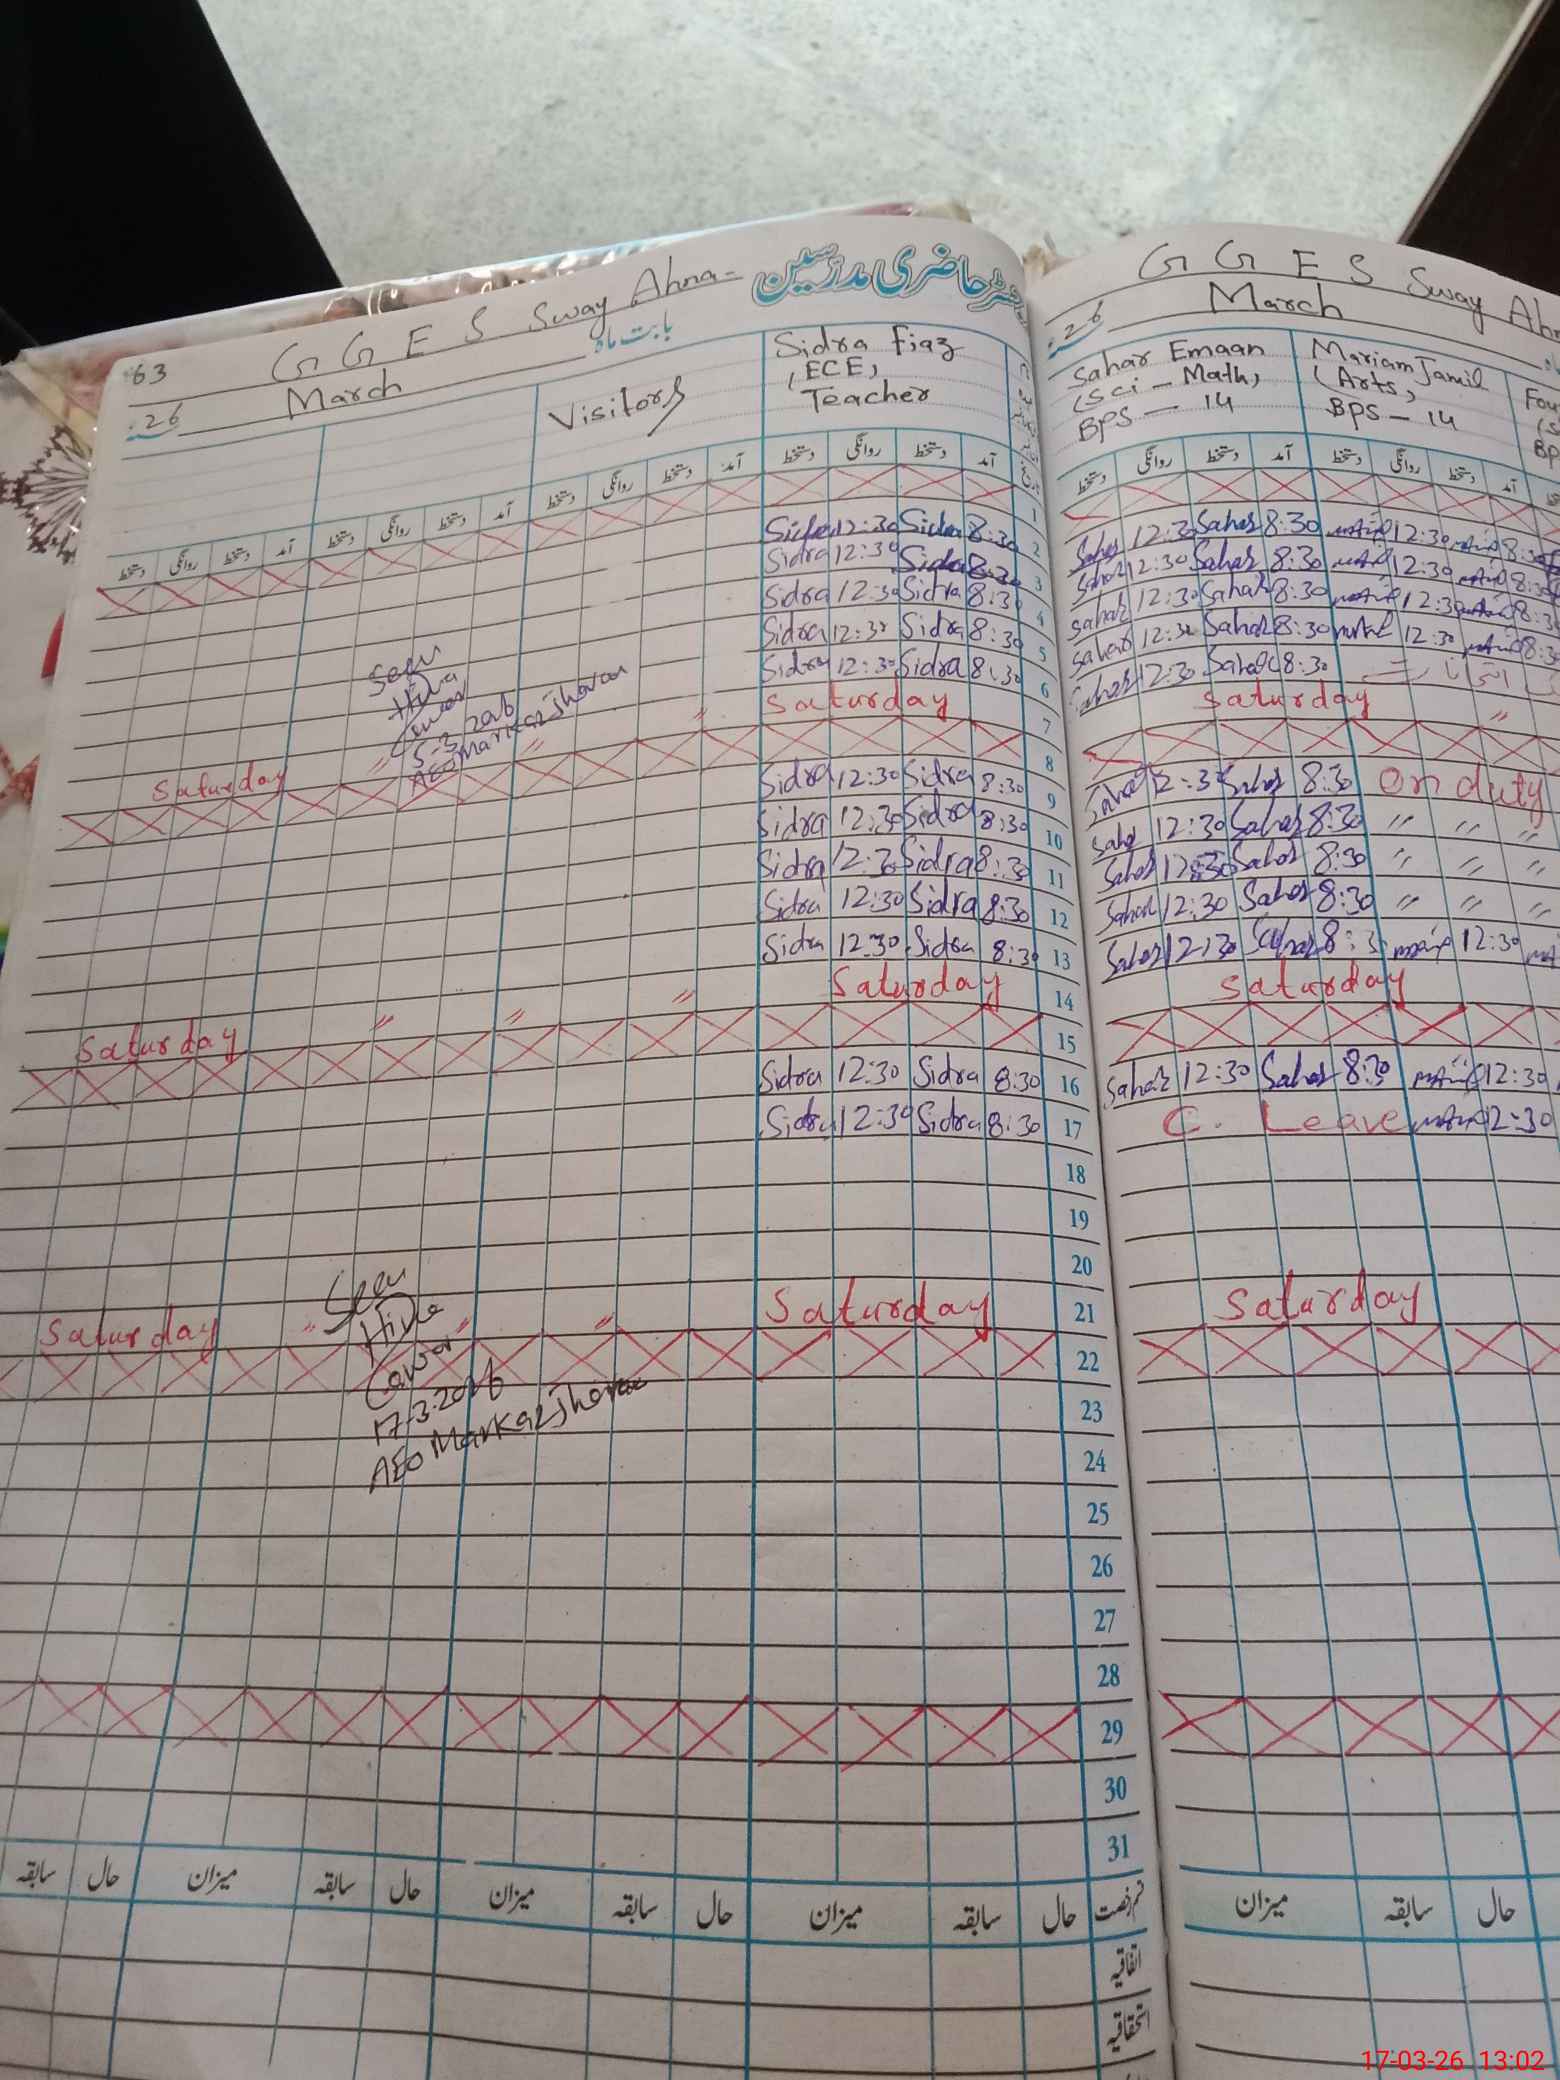 63
G G E S Sway Ahna-
رجسٹر حاضری مدرسین
26 March بابت ماہ
Visitors
Sidra Fiaz
(ECE)
Teacher
دستخط روانگی دستخط آمد دستخط روانگی دستخط آمد دستخط روانگی دستخط آمد دستخط روانگی دستخط آمد
1
Sidra 12:30 Sidra 8:30 2
Sidra 12:30 Sidra 8:30 3
Sidra 12:30 Sidra 8:30 4
Sidra 12:30 Sidra 8:30 5
Sidra 12:30 Sidra 8:30 6
Seen
Hina
5-3-2026
AEO Markaz Jhavan
Saturday " " " Saturday 7
8
Sidra 12:30 Sidra 8:30 9
Sidra 12:30 Sidra 8:30 10
Sidra 12:30 Sidra 8:30 11
Sidra 12:30 Sidra 8:30 12
Sidra 12:30 Sidra 8:30 13
Saturday " " " Saturday 14
15
Sidra 12:30 Sidra 8:30 16
Sidra 12:30 Sidra 8:30 17
18
19
20
Saturday " " " Saturday 21
22
Seen
Hina
17-3-2026
AEO Markaz Jhavan
23
24
25
26
27
28
29
30
31
سابقہ حال میزان سابقہ حال میزان سابقہ حال میزان سابقہ حال قسم رخصت
اتفاقیہ
استحقاقیہ
G G E S Sway Ahn
26 March
Sahar Emaan
(Sci - Math)
BPS - 14
Mariam Jamil
(Arts)
BPS - 14
Fou
(S
BP
دستخط روانگی دستخط آمد دستخط روانگی دستخط آمد
Sahar 12:30 Sahar 8:30 12:30 8:30
Sahar 12:30 Sahar 8:30 12:30 8:30
Sahar 12:30 Sahar 8:30 12:30 8:30
Sahar 12:30 Sahar 8:30 12:30 8:30
Sahar 12:30 Sahar 8:30
Saturday "
Sahar 12:30 Sahar 8:30 on duty
Sahar 12:30 Sahar 8:30 " " "
Sahar 12:30 Sahar 8:30 " " "
Sahar 12:30 Sahar 8:30 " " "
Sahar 12:30 Sahar 8:30 12:30
Saturday
Sahar 12:30 Sahar 8:30 12:30
C. Leave 12:30
Saturday
میزان سابقہ حال
17-03-26 13:02